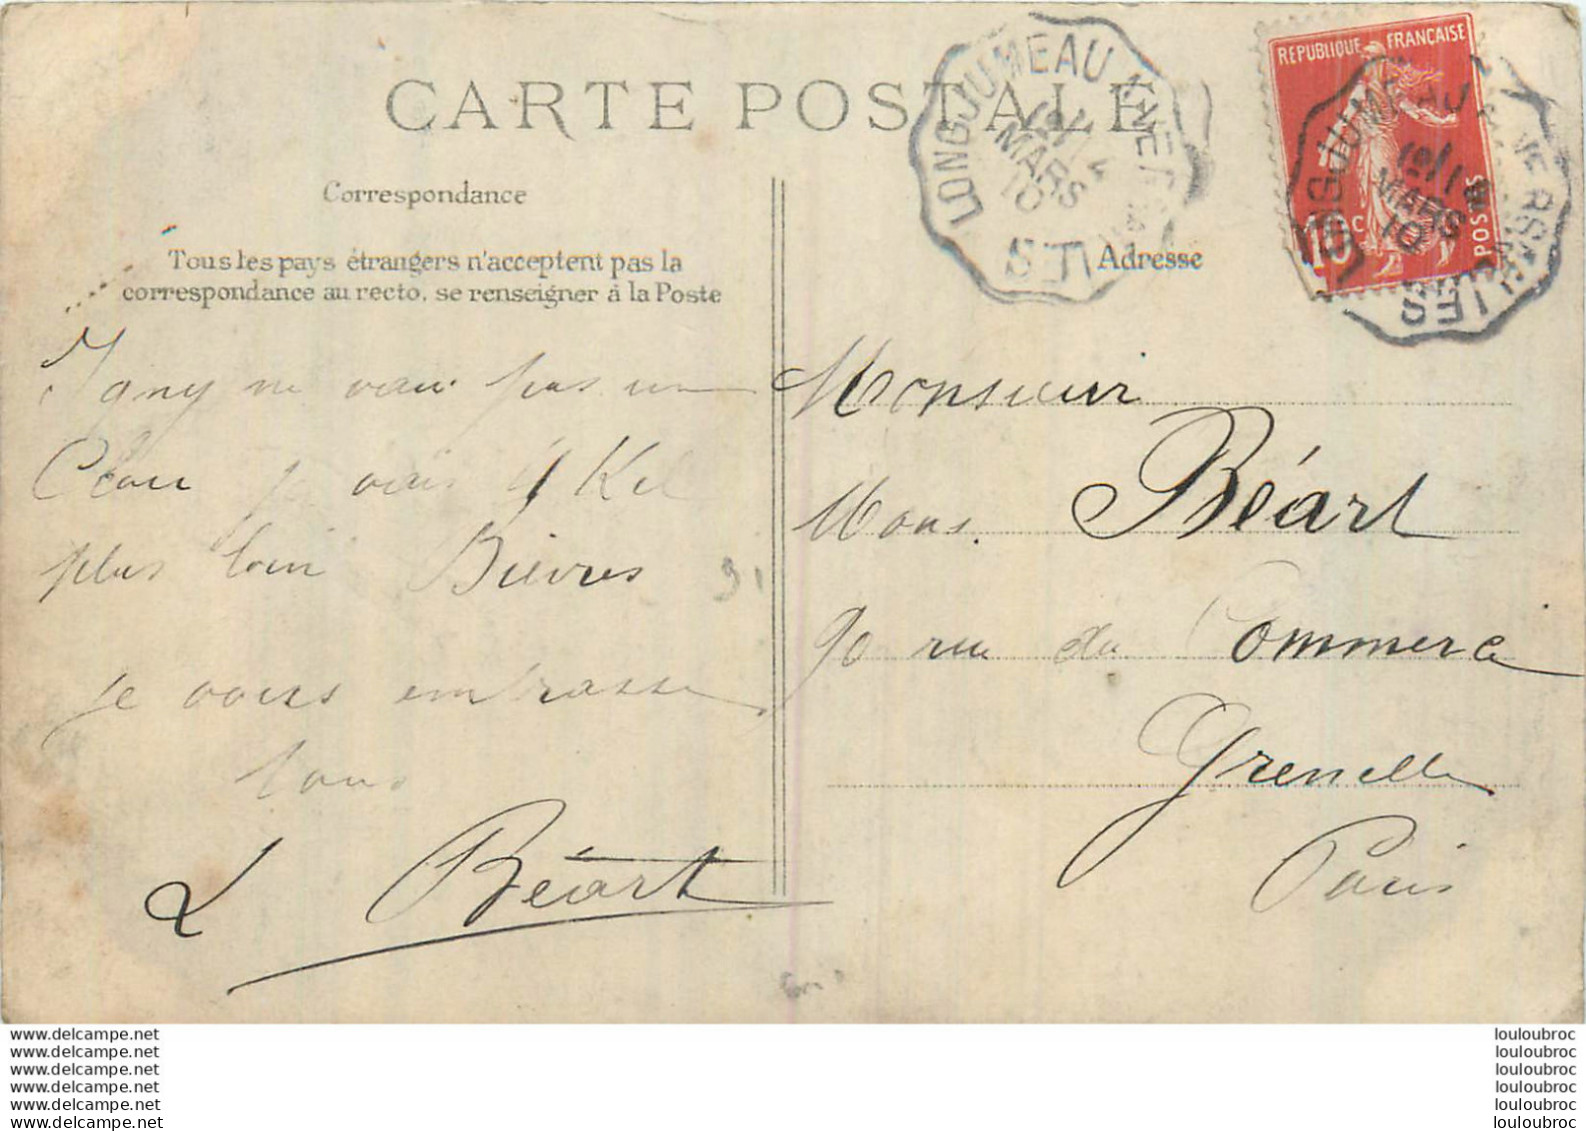 CARTE POSTALE
Correspondance
Tous les pays étrangers n'acceptent pas la
correspondance au recto, se renseigner à la Poste
Adresse
LONGJUMEAU
MARS
10
REPUBLIQUE FRANÇAISE
10c
POSTES
MARS
10
Igny ne vau pas un
Clou je vais
plus loin Bièvres
91
je vous embrasse
tous
L Béart
Monsieur
Mons. Béart
90 rue du Commerce
Grenelle
Paris
www.delcampe.net
www.delcampe.net
www.delcampe.net
www.delcampe.net
www.delcampe.net
www.delcampe.net
louloubroc
louloubroc
louloubroc
louloubroc
louloubroc
louloubroc